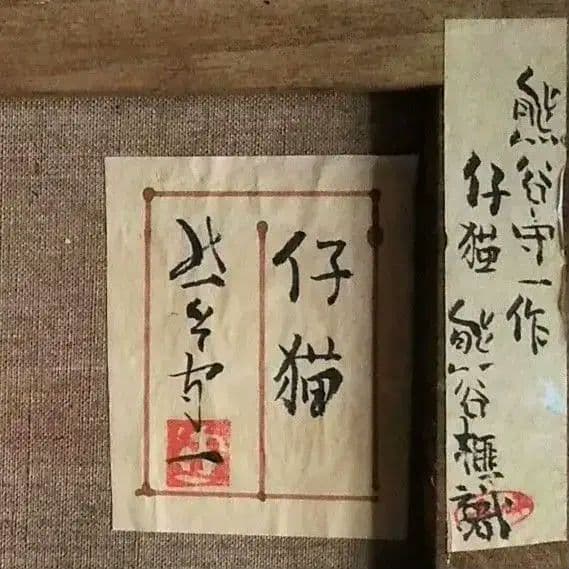 熊谷守一作
仔猫
熊谷榧識
仔猫
熊谷守一